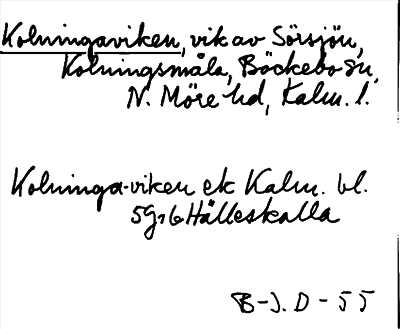 Kolningaviken, vik av Sörsjön,
Kolningsmåla, Bäckebo sn,
N. Möre hd, Kalm. l.
Kolninga-viken ek Kalm. bl.
5G, 6 Hälleskalla
B-J. D - 55